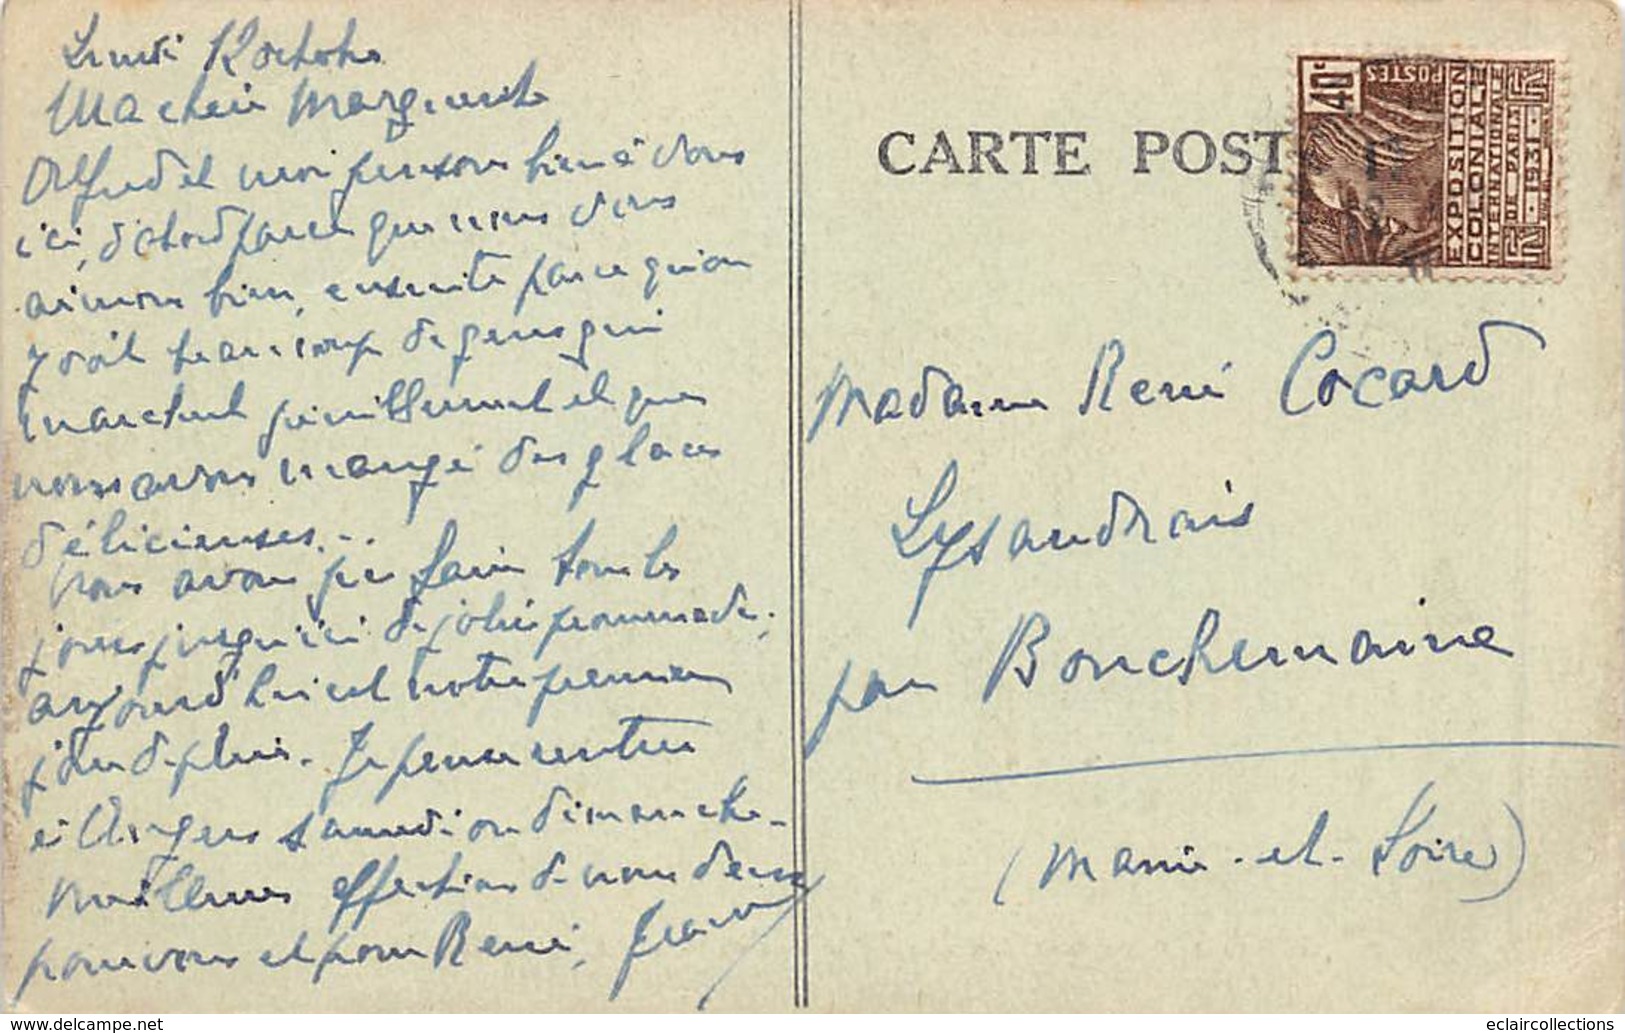 Lundi
Ma chère Marguerite
Alfred et moi pensons bien à vous
ici, d'abord parce que nous vous
aimons bien, ensuite parce qu'on
y voit beaucoup de gens qui
marchent péniblement et que
nous avons mangé des glaces
délicieuses...
Nous avons pu faire tous les
jours jusqu'ici de jolies promenades,
aujourd'hui est notre premier
jour de pluie. Je pense rentrer
à Angers samedi ou dimanche.
Meilleures affections de nous deux
pour vous et pour René,
CARTE POST
40c
POSTES
EXPOSITION
COLONIALE
INTERNATIONALE
DE PARIS
1931
Madame René Cocard
Lysandrais
par Bouchemaine
(Maine-et-Loire)
www.delcampe.net
eclaircollections